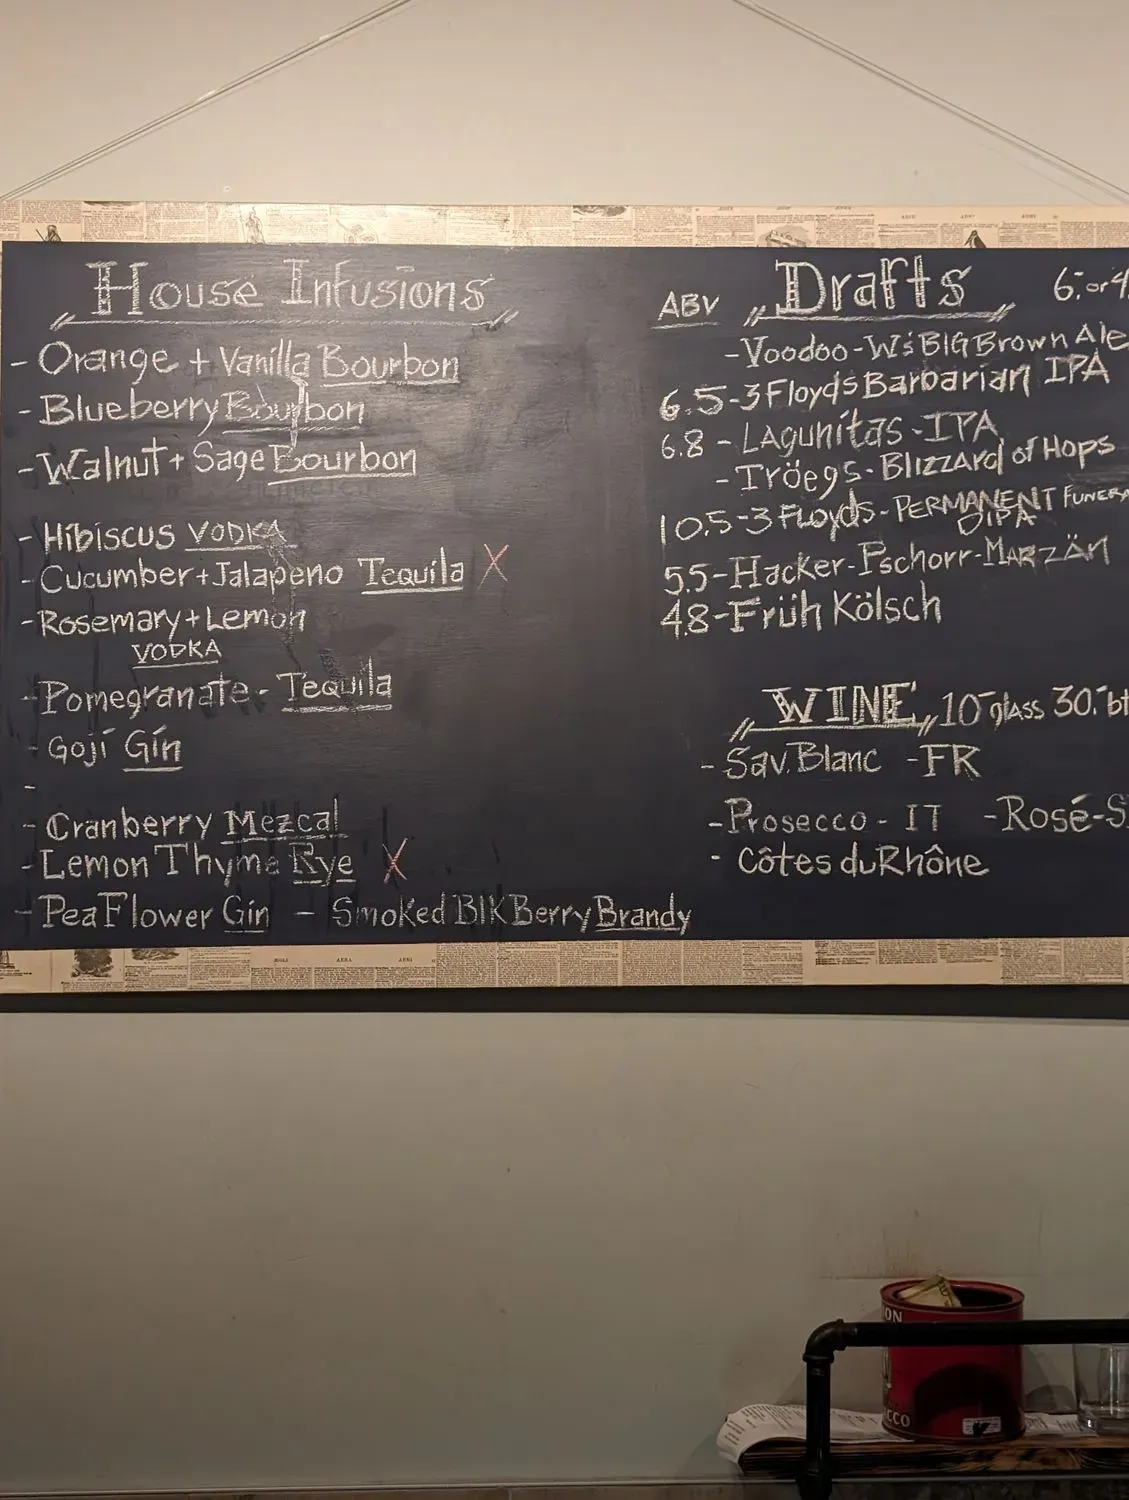 House Infusions
- Orange + Vanilla Bourbon
- Blueberry Bourbon
- Walnut + Sage Bourbon
- Hibiscus VODKA
- Cucumber + Jalapeno Tequila X
- Rosemary + Lemon
VODKA
- Pomegranate - Tequila
- Goji Gin
-
- Cranberry Mezcal
- Lemon Thyme Rye X
- Pea Flower Gin - Smoked Blk Berry Brandy
ABV Drafts 6.- or 4.
- Voodoo - W's BIG Brown Ale
6.5 - 3 Floyds Barbarian IPA
6.8 - Lagunitas - IPA
- Tröegs - Blizzard of Hops
10.5 - 3 Floyds - PERMANENT FUNERA
DIPA
5.5 - Hacker-Pschorr - MARZÄN
4.8 - Früh Kölsch
WINE 10- glass 30.- bt
- Sav. Blanc - FR
- Prosecco - IT - Rosé - S
- Côtes du Rhône
ON
CCO